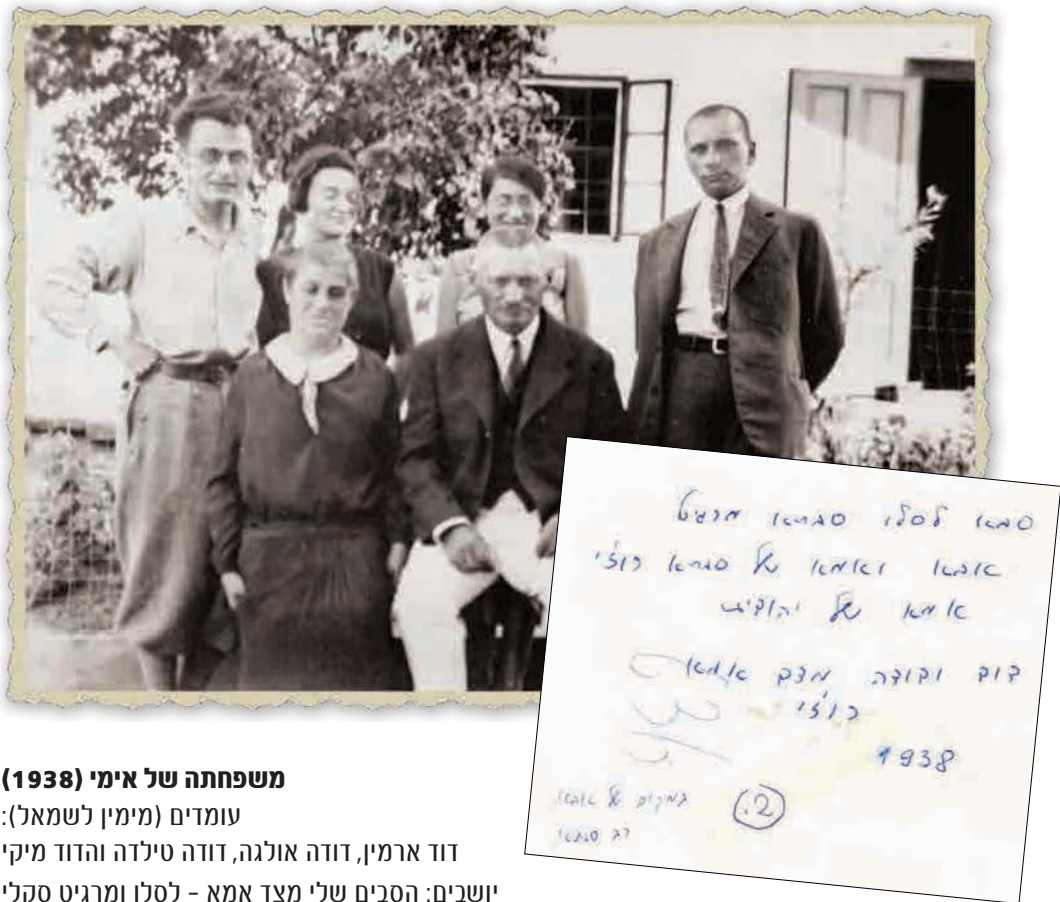 סבא לסלו סבתא מרגיט
אבא ואמא של סבתא רוז'י
אמא של יהודית
דוד ודודה מצד אמא
רוז'י
1938
2.
משפחתה של אימי (1938)
עומדים (מימין לשמאל):
דוד ארמין, דודה אולגה, דודה טילדה והדוד מיקי
יושבים: הסבים שלי מצד אמא – לסלו ומרגיט סקלי